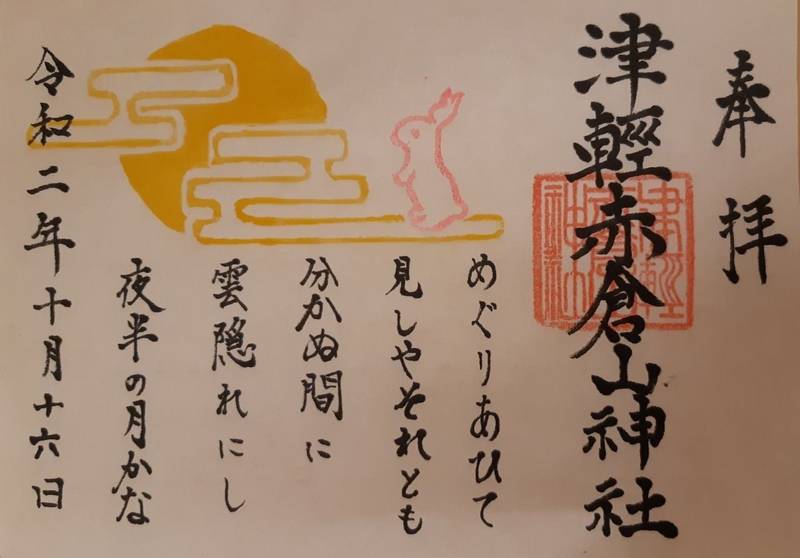 奉拝
津輕赤倉山神社
めぐりあひて
見しやそれとも
分かぬ間に
雲隠れにし
夜半の月かな
令和二年十月十六日